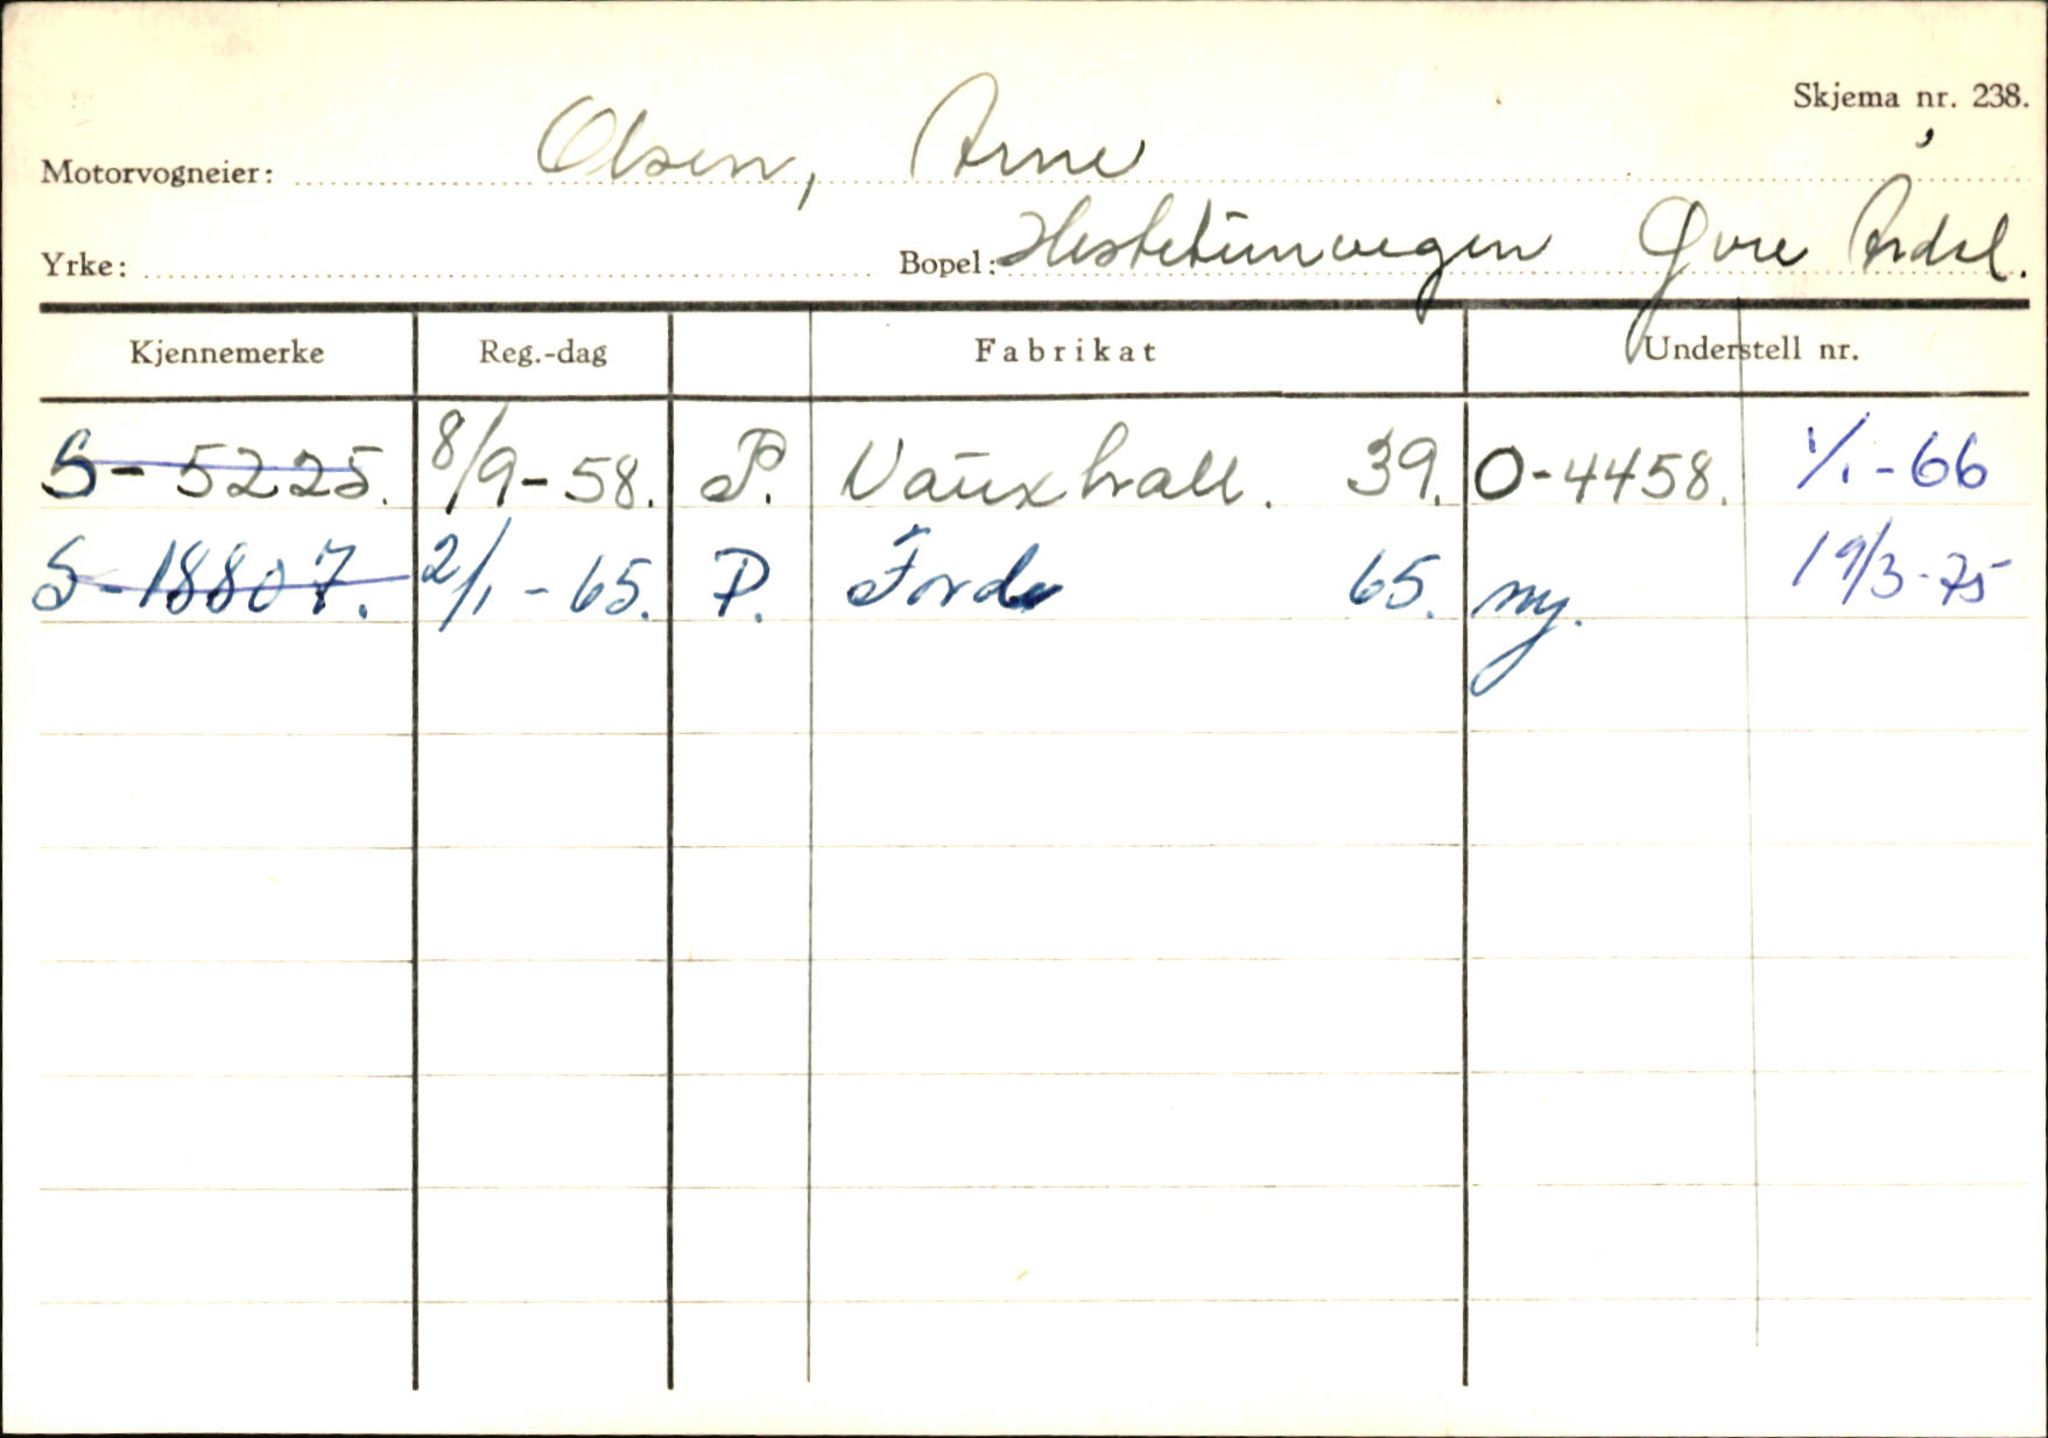 Skjema nr. 238.
Motorvogneier: Olsen, Arne
Yrke: Bopel: Hestetunvegen Øvre Årdal.
Kjennemerke Reg.-dag Fabrikat Understell nr.
S-5225. 8/9-58. P. Vauxhall. 39. O-4458. 1/1-66
S-18807. 2/1-65. P. Ford 65. ny. 19/3-75